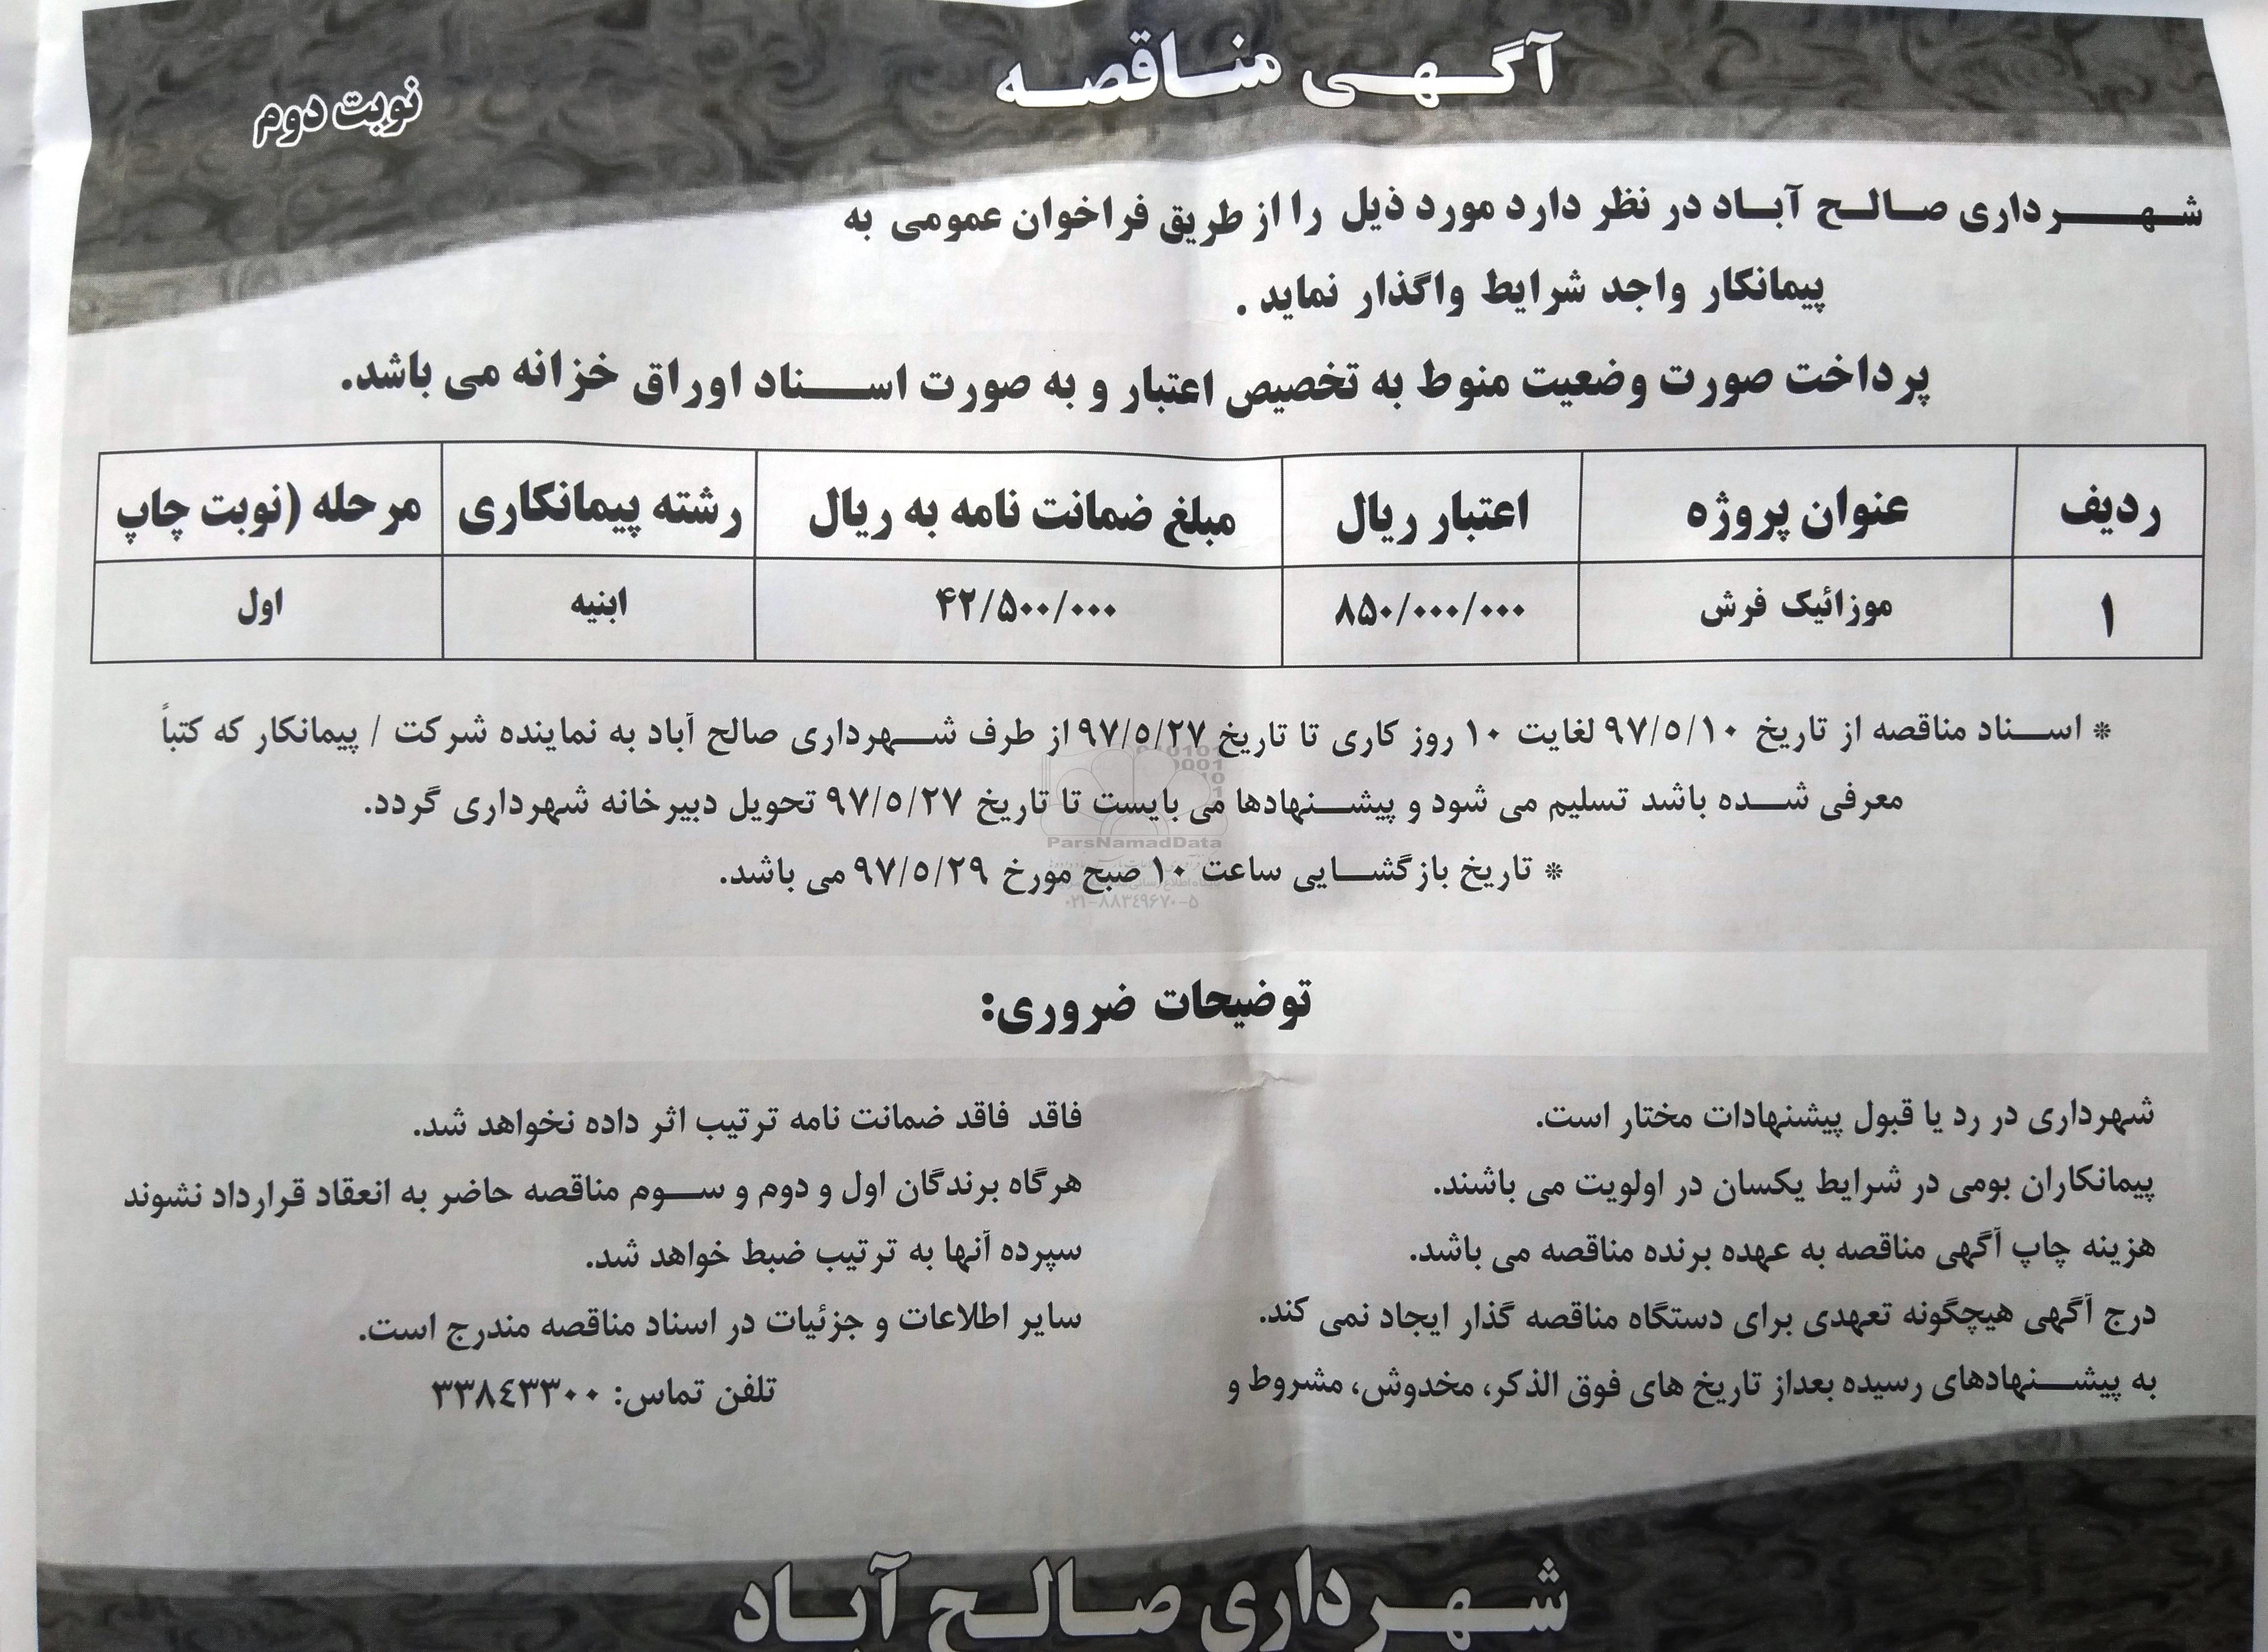 آگهی مناقصه
نوبت دوم
شهرداری صالح آباد در نظر دارد مورد ذیل را از طریق فراخوان عمومی به
پیمانکار واجد شرایط واگذار نماید .
پرداخت صورت وضعیت منوط به تخصیص اعتبار و به صورت اسناد اوراق خزانه می باشد.
ردیف عنوان پروژه اعتبار ریال مبلغ ضمانت نامه به ریال رشته پیمانکاری مرحله (نوبت چاپ
۱ موزائیک فرش ۸۵۰/۰۰۰/۰۰۰ ۴۲/۵۰۰/۰۰۰ ابنیه اول
* اسناد مناقصه از تاریخ ۹۷/۵/۱۰ لغایت ۱۰ روز کاری تا تاریخ ۹۷/۵/۲۷ از طرف شهرداری صالح آباد به نماینده شرکت / پیمانکار که کتباً
معرفی شده باشد تسلیم می شود و پیشنهادها می بایست تا تاریخ ۹۷/۵/۲۷ تحویل دبیرخانه شهرداری گردد.
* تاریخ بازگشایی ساعت ۱۰ صبح مورخ ۹۷/۵/۲۹ می باشد.
ParsNamadData
۰۲۱-۸۸۳۴۹۶۷۰-۵
توضیحات ضروری:
شهرداری در رد یا قبول پیشنهادات مختار است.
پیمانکاران بومی در شرایط یکسان در اولویت می باشند.
هزینه چاپ آگهی مناقصه به عهده برنده مناقصه می باشد.
درج آگهی هیچگونه تعهدی برای دستگاه مناقصه گذار ایجاد نمی کند.
به پیشنهادهای رسیده بعداز تاریخ های فوق الذکر، مخدوش، مشروط و
فاقد فاقد ضمانت نامه ترتیب اثر داده نخواهد شد.
هرگاه برندگان اول و دوم و سوم مناقصه حاضر به انعقاد قرارداد نشوند
سپرده آنها به ترتیب ضبط خواهد شد.
سایر اطلاعات و جزئیات در اسناد مناقصه مندرج است.
تلفن تماس: ۳۳۸٤۳۳۰۰
شهرداری صالح آباد